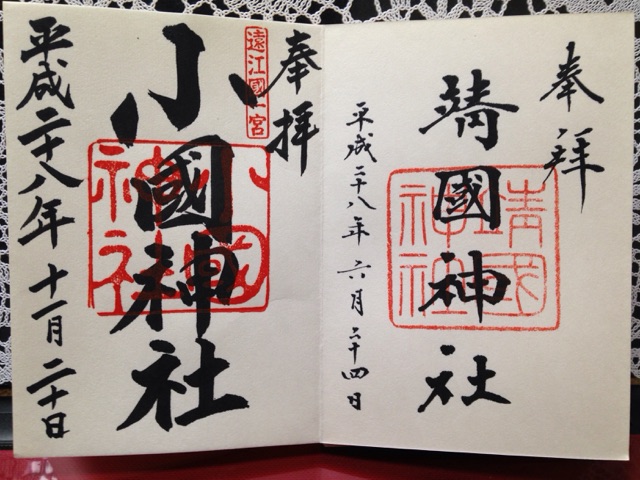 奉拝
靖國神社
靖國神社
平成二十八年六月二十四日
奉拝
遠江國一宮
小國神社
小國神社
平成二十八年十一月二十日